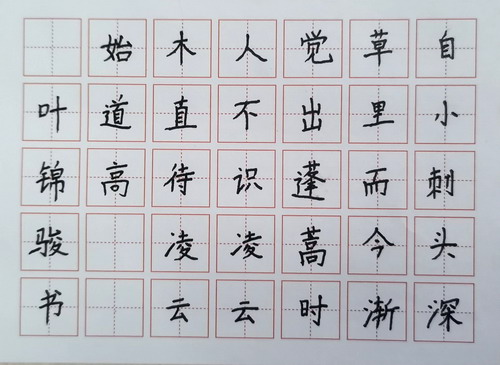 自小刺头深
草里而今渐
觉出蓬蒿时
人不识凌云
木直待凌云
始道高
叶锦骏书